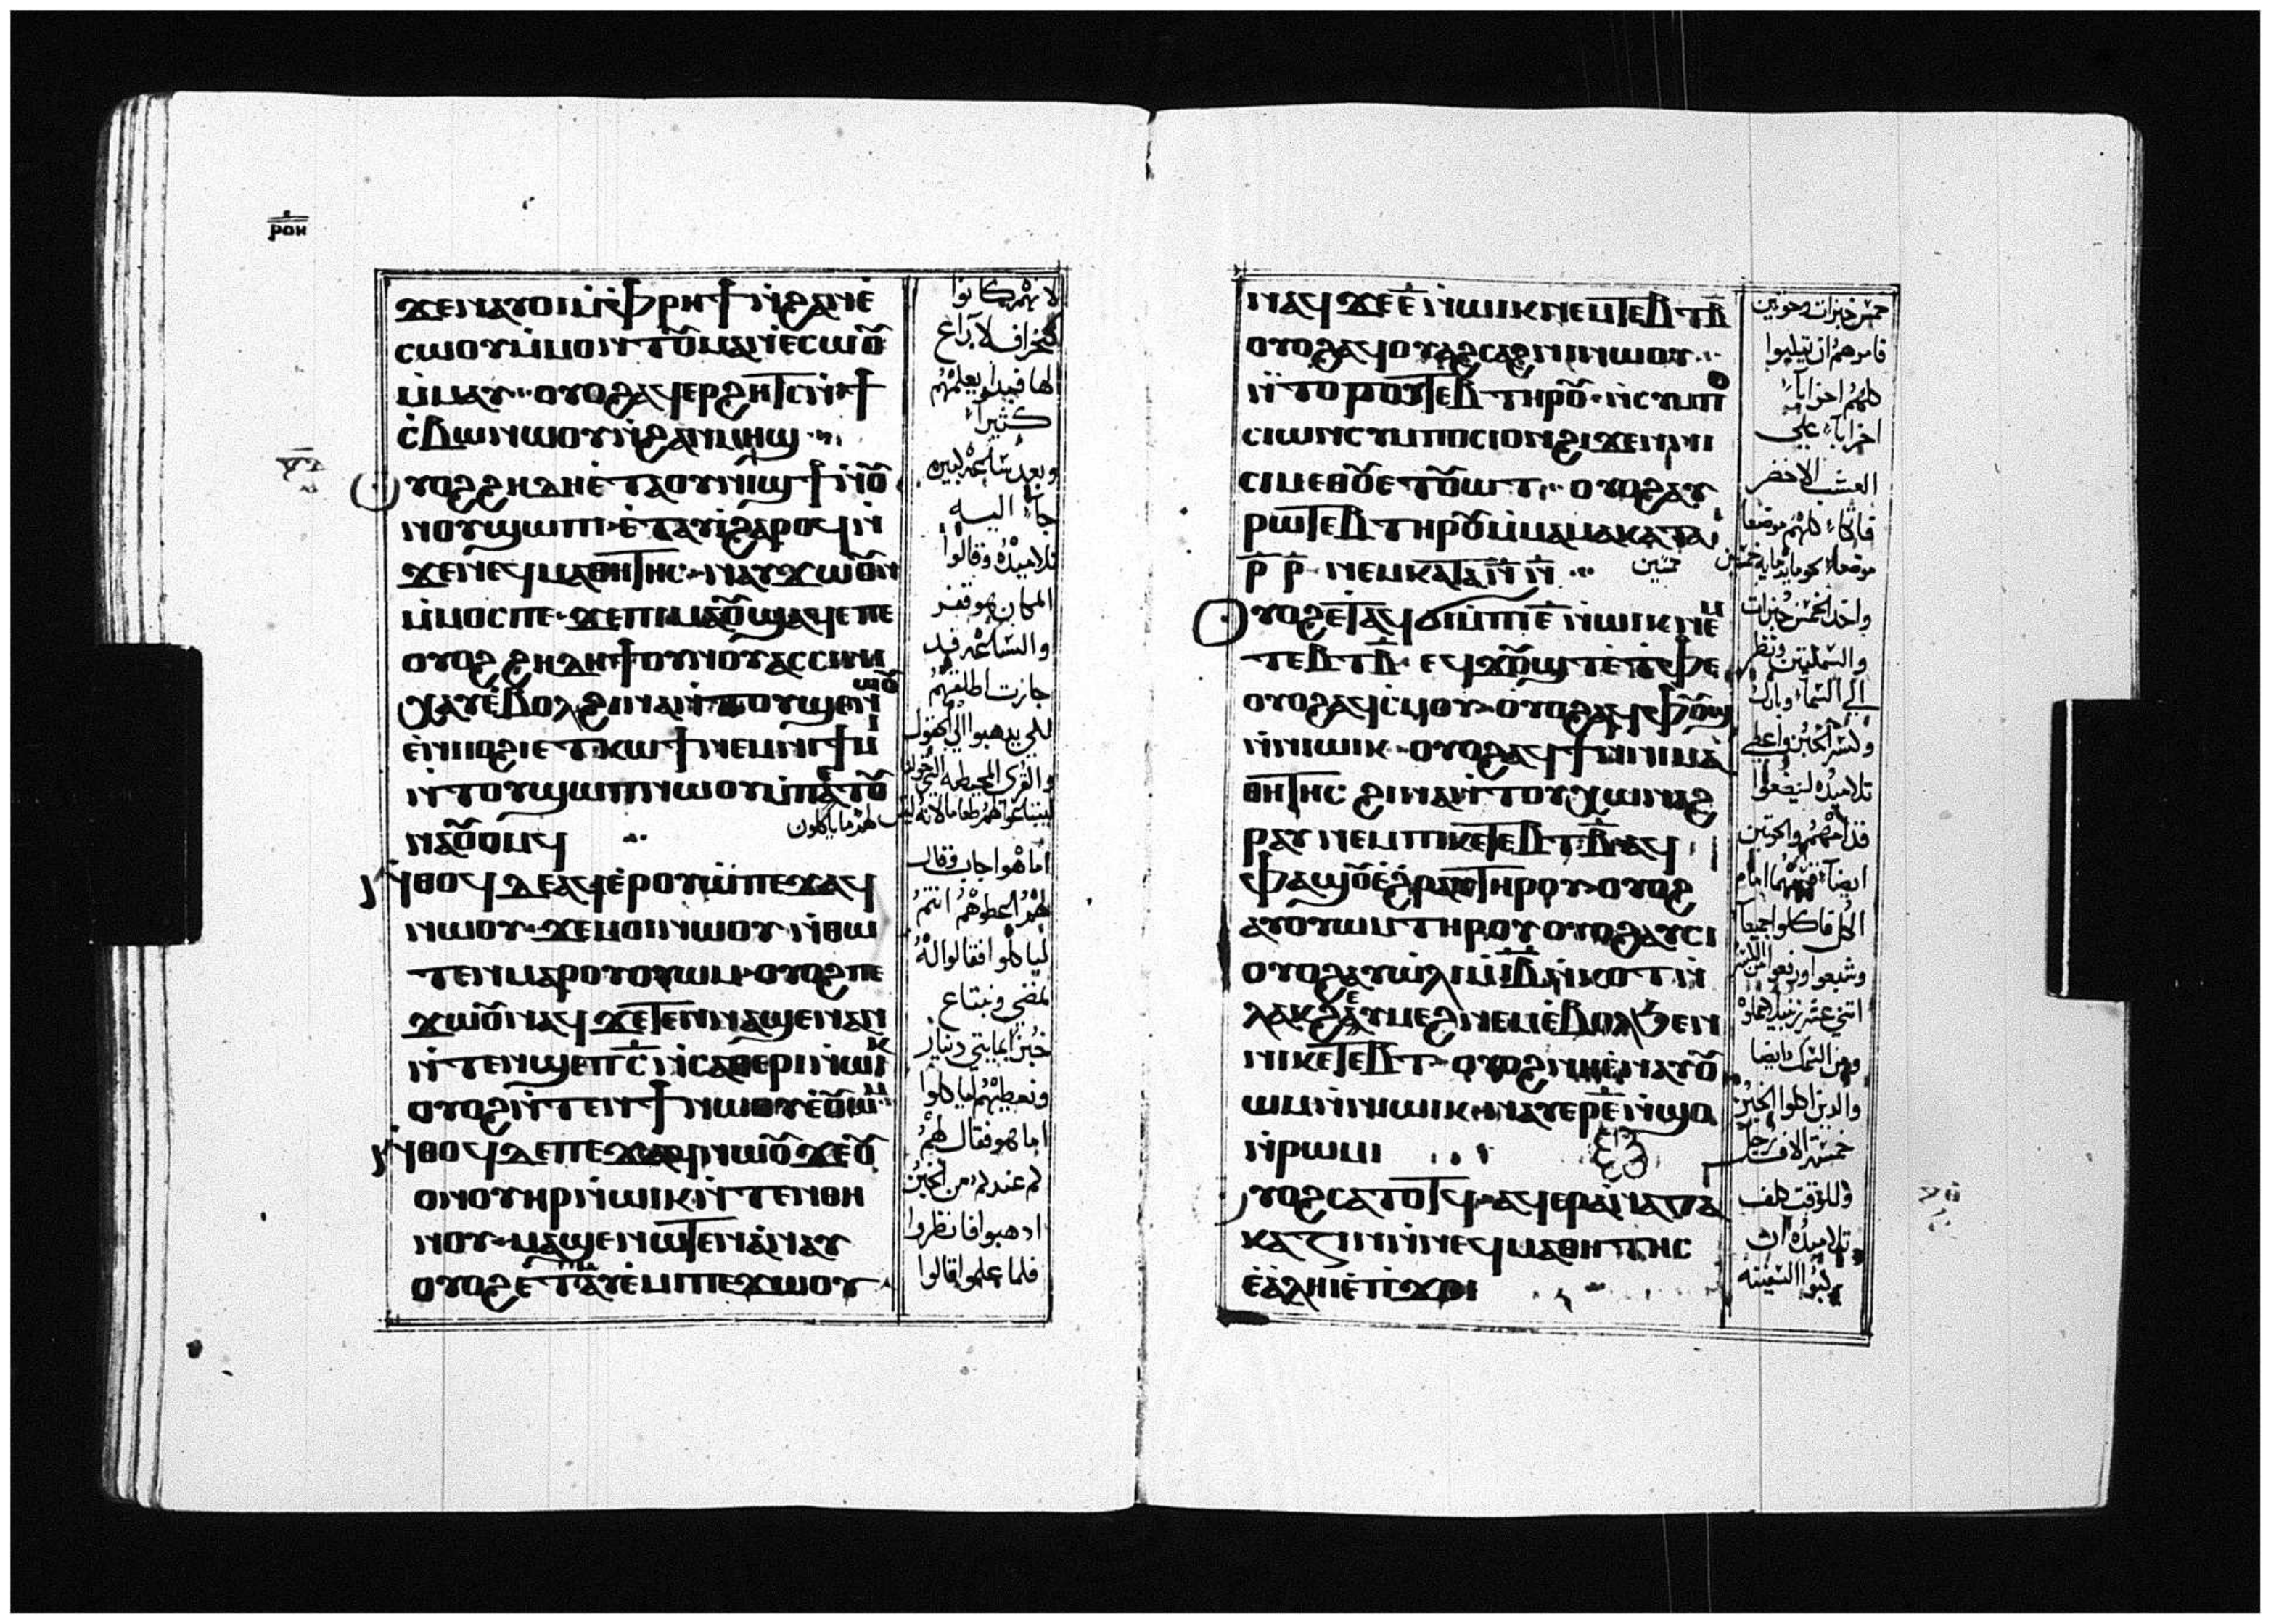 ⲣⲟⲏ
ϫⲉⲛⲁⲩⲟⲓⲙ̀ⲫ̀ⲣⲏϯⲛ̀ϩⲁⲛⲉ̀
ⲥⲱⲟⲩⲙ̀ⲙⲟⲛⲧⲟⲩⲙⲁⲛⲉ̀ⲥⲱⲟⲩ
ⲙ̀ⲙⲁⲩ ⲟⲩⲟϩⲁϥⲉⲣϩⲏⲧⲥⲛ̀ϯ
ⲥ̀ⲃⲱⲛⲱⲟⲩⲛ̀ϩⲁⲛⲙⲏϣ
ⲩⲟϩϩⲏⲇⲏⲉ̀ⲧⲁⲟⲩⲛⲓϣϯⲛ̀ⲟⲩ
ⲛⲟⲩϣⲱⲡⲓ ⲉ̀ⲧⲁⲩⲓ̀ϩⲁⲣⲟϥⲛ̀
ϫⲉⲛⲉϥⲙⲁⲑⲏⲧⲏⲥ ⲛⲁⲩϫⲱⲟⲩⲛ
ⲙ̀ⲙⲟⲥⲡⲉ ϫⲉⲡⲓⲙⲁⲟⲩϣⲁϥⲉⲡⲉ
ⲟⲩⲟϩϩⲏⲇⲏϯⲟⲩⲛⲟⲩⲁⲥⲥⲓⲛⲓ
ⲭⲁⲩⲉ̀ⲃⲟⲗϩⲓⲛⲁⲛ̀ⲧⲟⲩϣⲉⲛⲱⲟⲩ
ⲉ̀ⲛⲓⲟϩⲓⲉⲧⲕⲱϯⲛⲉⲙⲛⲓϯⲙⲓ
ⲛ̀ⲧⲟⲩϣⲱⲡⲛⲱⲟⲩⲙ̀ⲡⲉⲧⲟⲩ
ⲛⲁⲟⲩⲟⲙϥ
ⲛ̀ⲑⲟϥⲇⲉⲁϥⲉ̀ⲣⲟⲩⲱ̀ⲡⲉϫⲁϥ
ⲛⲱⲟⲩ ϫⲉⲙⲟⲓⲛⲱⲟⲩ ⲛ̀ⲑⲱ
ⲧⲉⲛⲙⲁⲣⲟⲩⲟⲩⲱⲙ ⲟⲩⲟϩⲡⲉ
ϫⲱⲟⲩⲛⲁϥϫⲉⲧⲉⲛⲛⲁϣⲉⲛⲁⲛ
ⲛ̀ⲧⲉⲛϣⲉⲡⲥ̅ⲛ̀ⲥⲁⲑⲉⲣⲓⲛ̀ⲱⲓⲕ
ⲟⲩⲟϩⲛ̀ⲧⲉⲛϯⲛⲱⲟⲩⲉ̀ⲟⲩⲱⲙ
ⲛ̀ⲑⲟϥⲇⲉⲡⲉϫⲁϥⲛⲱⲟⲩϫⲉⲟⲩ
ⲟⲛⲟⲩⲏⲣⲛ̀ⲱⲓⲕⲛ̀ⲧⲉⲛⲑⲏ
ⲛⲟⲩ ⲙⲁϣⲉⲛⲱⲧⲉⲛⲁ̀ⲛⲁⲩ
ⲟⲩⲟϩⲉⲧⲁⲩⲉ̀ⲙⲓⲡⲉϫⲱⲟⲩ
لانهم كانوا
كخراف لا راع
لها فبدا يعلمهم
كثيرا
وبعد ساعه كبيره
جاء اليه
تلاميذه وقالوا
المكان هو قفر
والساعه قد
جازت اطلقهم
لكي يذهبوا الي الحقول
والقرى المحيطه
ليبتاعوا لهم طعاما لانه ليس
لهم ما ياكلون
اما هو اجاب وقال
لهم اعطوهم انتم
لياكلوا فقالوا له
نمضي ونبتاع
خبزا بمايتي دينار
ونعطيهم لياكلوا
اما هو فقال لهم
كم عندكم من الخبز
اذهبوا فانظروا
فلما علموا قالوا
ⲛⲁϥϫⲉⲉ̅ⲛ̀ⲱⲓⲕⲛⲉⲙⲧⲉⲃⲧⲃ̅
ⲟⲩⲟϩⲁϥⲟⲩⲁϩⲥⲁϩⲛⲓⲛⲱⲟⲩ
ⲛ̀ⲧⲟⲩⲣⲟⲧⲉⲃⲧⲏⲣⲟⲩ ⲛ̀ⲥⲩⲙⲡⲟ
ⲥⲓⲱⲛⲥⲩⲙⲡⲟⲥⲓⲟⲛϩⲓϫⲉⲛⲛⲓ
ⲥⲓⲙⲉⲑⲟⲩⲉⲧⲟⲩⲱⲧ ⲟⲩⲟϩⲁⲩ
ⲣⲱⲧⲉⲃⲧⲏⲣⲟⲩⲙ̀ⲙⲁⲙⲁⲕⲁⲧⲁ
ⲣ̅ ⲣ̅ ⲛⲉⲙⲕⲁⲧⲁⲛ̅ ⲛ̅
ⲩⲟϩⲉⲧⲁϥϭⲓⲙ̀ⲡⲓⲉ̅ⲛ̀ⲱⲓⲕⲛⲉⲙ
ⲧⲉⲃⲧⲃ̅ ⲉϥϫⲟⲩϣⲧⲉ̀ⲧ̀ⲫⲉ
ⲟⲩⲟϩⲁϥⲥ̀ⲙⲟⲩ ⲟⲩⲟϩⲁϥⲫⲟⲩϣ
ⲛ̀ⲛⲓⲱⲓⲕ ⲟⲩⲟϩⲁϥϯⲛ̀ⲛⲓⲙⲁ
ⲑⲏⲧⲏⲥ ϩⲓⲛⲁⲛ̀ⲧⲟⲩⲭⲱⲛⲁϩ
ⲣⲁⲩ ⲛⲉⲙⲡⲓⲕⲉⲧⲉⲃⲧⲃ̅ⲁϥ
ⲫⲁϣⲟⲩⲉ̀ϩⲣⲁⲩⲧⲏⲣⲟⲩ ⲟⲩⲟϩ
ⲁⲩⲟⲩⲱⲙⲧⲏⲣⲟⲩ ⲟⲩⲟϩⲁⲩⲥⲓ
ⲟⲩⲟϩⲁⲩⲱ̀ⲗⲓⲙ̀ⲓⲃ̅ⲛ̀ⲕⲟⲧⲛ̀
ⲗⲁⲕϩⲉⲩⲙⲉϩⲛⲉⲙⲉ̀ⲃⲟⲗϧⲉⲛ
ⲛⲓⲕⲉⲧⲉⲃⲧ ⲟⲩⲟϩⲛⲏⲉ̀ⲛⲁⲩⲟⲩ
ⲱⲙⲛ̀ⲛⲓⲱⲓⲕ ⲛⲁⲩⲉⲣⲉ̅ⲛ̀ϣⲟ
ⲛ̀ⲣⲱⲙⲓ
ⲩⲟϩⲥⲁⲧⲟⲧϥ ⲁϥⲉⲣⲁⲛⲁⲅ
ⲕⲁⲍⲓⲛⲛ̀ⲛⲉϥⲙⲁⲑⲏⲧⲏⲥ
ⲉ̀ⲁ̀ⲗⲏⲓⲉ̀ⲡϫⲟⲓ
خمس خبزات وحوتين
فامرهم ان يتكيوا
كلهم احزابا
احزابا علي
العشب الاخضر
فاتكاء كلهم موضعا
موضعا نحو مايه مايه خمسين
خمسين
واخذ الخمس خبزات
والسمكتين ونظر
الى السماء وبارك
وكسر الخبز واعطى
تلاميذه ليضعوا
قدامهم والحوتين
ايضا قسمهما امام
الكل فاكلوا جميعا
وشبعوا ورفعوا من الكسر
اثني عشر زنبيلا مملوه
ومن السمك ايضا
والذين اكلوا الخبز
خمسة الاف رجل
وللوقت كلف
تلاميذه ان
يركبوا السفينه